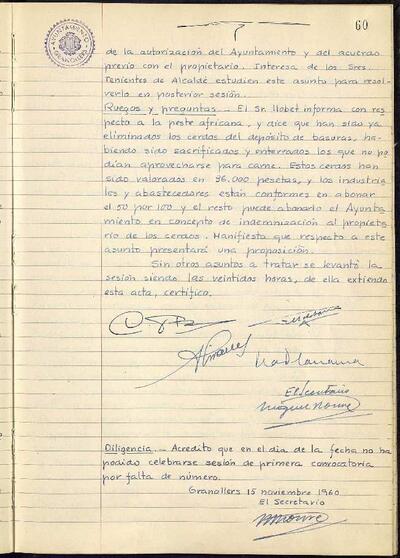 60
AYUNTAMIENTO
GRANOLLERS
de la autorización del Ayuntamiento y del acuerdo
previo con el propietario. Interesa de los Sres.
Tenientes de Alcalde estudien este asunto para resol-
verlo en posterior sesión.
Ruegos y preguntas.- El Sr. Llobet informa con res-
pecto a la peste africana, y dice que han sido ya
eliminados los cerdos del depósito de basuras, ha-
biendo sido sacrificados y enterrados los que no po-
dían aprovecharse para carne. Estos cerdos han
sido valorados en 96.000 pesetas, y los industria-
les y abastecedores están conformes en abonar
el 50 por 100 y el resto puede abonarlo el Ayunta-
miento en concepto de indemnización al propieta-
rio de los cerdos. Manifiesta que respecto a este
asunto presentará una proposición.
Sin otros asuntos a tratar se levantó la
sesión siendo las veintidos horas, de ella extiendo
esta acta, certifico.
El Secretario
Diligencia.- Acredito que en el dia de la fecha no ha
podido celebrarse sesión de primera convocatoria
por falta de número.
Granollers 15 noviembre 1960
El Secretario